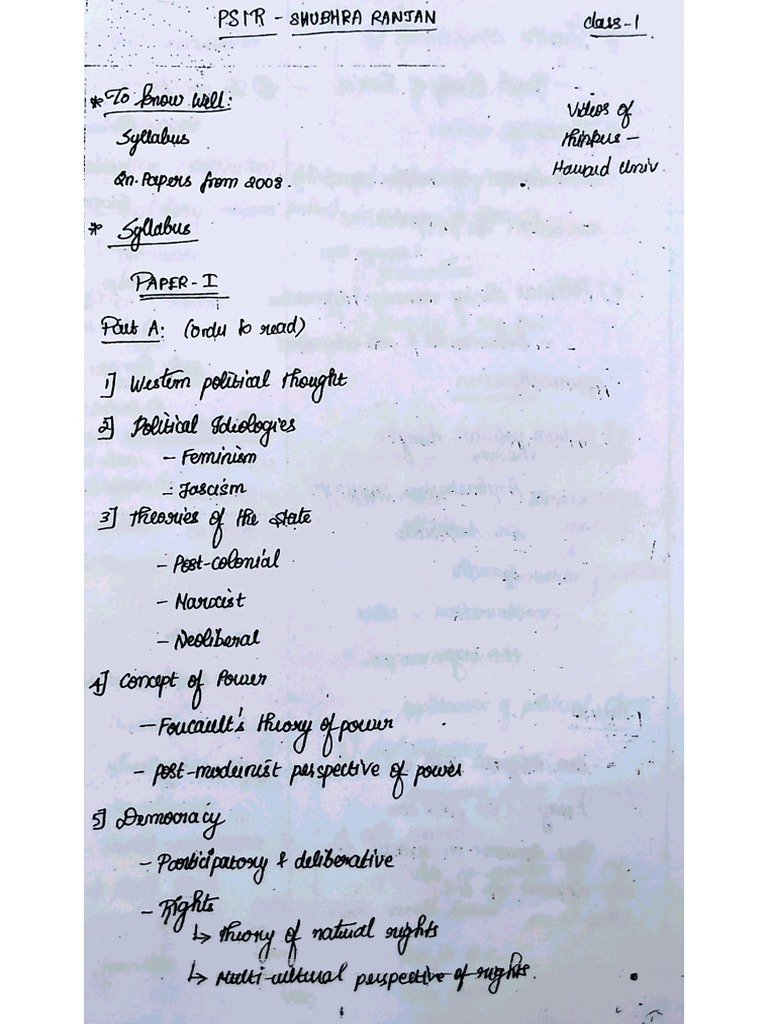 PSIR - SHUBHRA RANJAN
Class-1
* To know well:
Syllabus
Qn. Papers from 2008.
Videos of
thinkers -
Harvard Univ.
* Syllabus
PAPER-I
Part A: (order to read)
1] Western political thought
2] Political Idiologies
- Feminism
- Fascism
3] Theories of the state
- Post-colonial
- Marxist
- Neoliberal
4] Concept of Power
- Foucault's theory of power
- post-modernist perspective of power
5] Democracy
- Participatory & deliberative
- Rights
↳ theory of natural rights
↳ Multi-cultural perspective of rights.